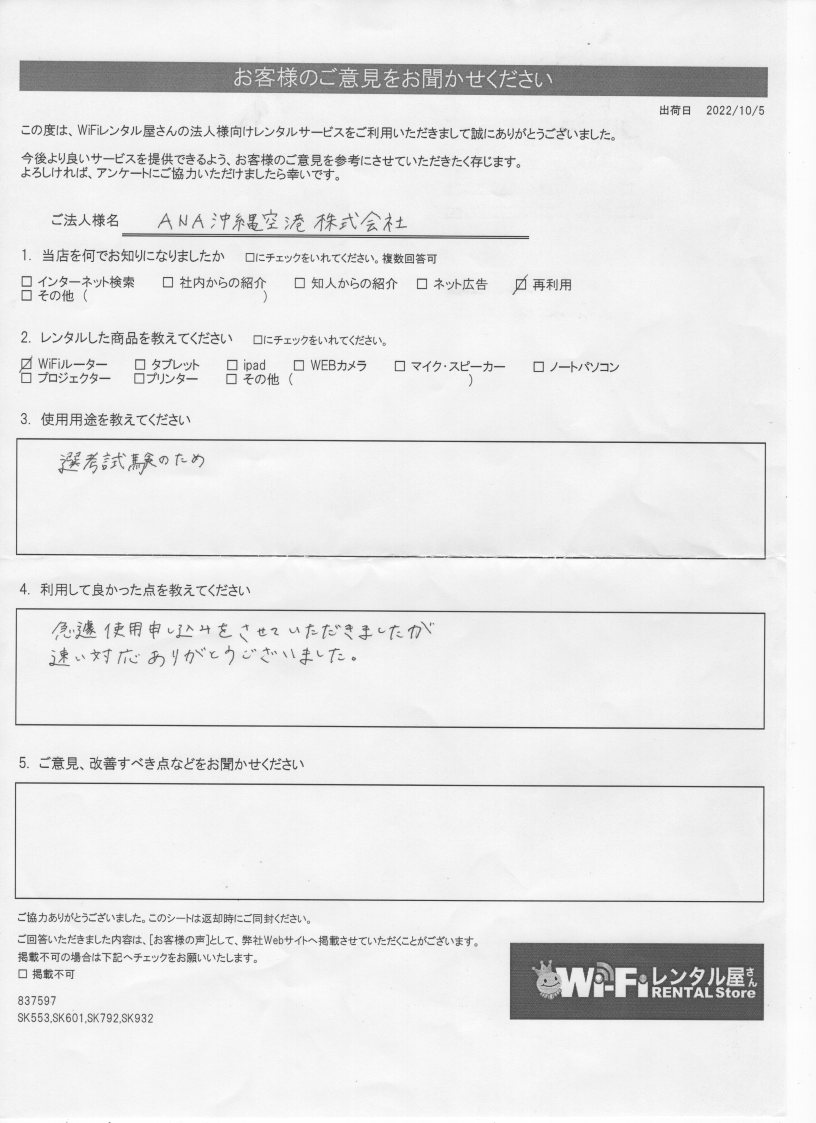 お客様のご意見をお聞かせください
出荷日 2022/10/5
この度は、WiFiレンタル屋さんの法人様向けレンタルサービスをご利用いただきまして誠にありがとうございました。
今後より良いサービスを提供できるよう、お客様のご意見を参考にさせていただきたく存じます。
よろしければ、アンケートにご協力いただけましたら幸いです。
ご法人様名 ANA沖縄空港株式会社
1. 当店を何でお知りになりましたか □にチェックをいれてください。複数回答可
□ インターネット検索 □ 社内からの紹介 □ 知人からの紹介 □ ネット広告 ☑ 再利用
□ その他 ( )
2. レンタルした商品を教えてください □にチェックをいれてください。
☑ WiFiルーター □ タブレット □ ipad □ WEBカメラ □ マイク・スピーカー □ ノートパソコン
□ プロジェクター □プリンター □ その他 ( )
3. 使用用途を教えてください
選考試験のため
4. 利用して良かった点を教えてください
急遽使用申し込みをさせていただきましたが
速い対応ありがとうございました。
5. ご意見、改善すべき点などをお聞かせください
ご協力ありがとうございました。このシートは返却時にご同封ください。
ご回答いただきました内容は、[お客様の声]として、弊社Webサイトへ掲載させていただくことがございます。
掲載不可の場合は下記へチェックをお願いいたします。
□ 掲載不可
837597
SK553,SK601,SK792,SK932
Wi-Fiレンタル屋さん
RENTAL Store